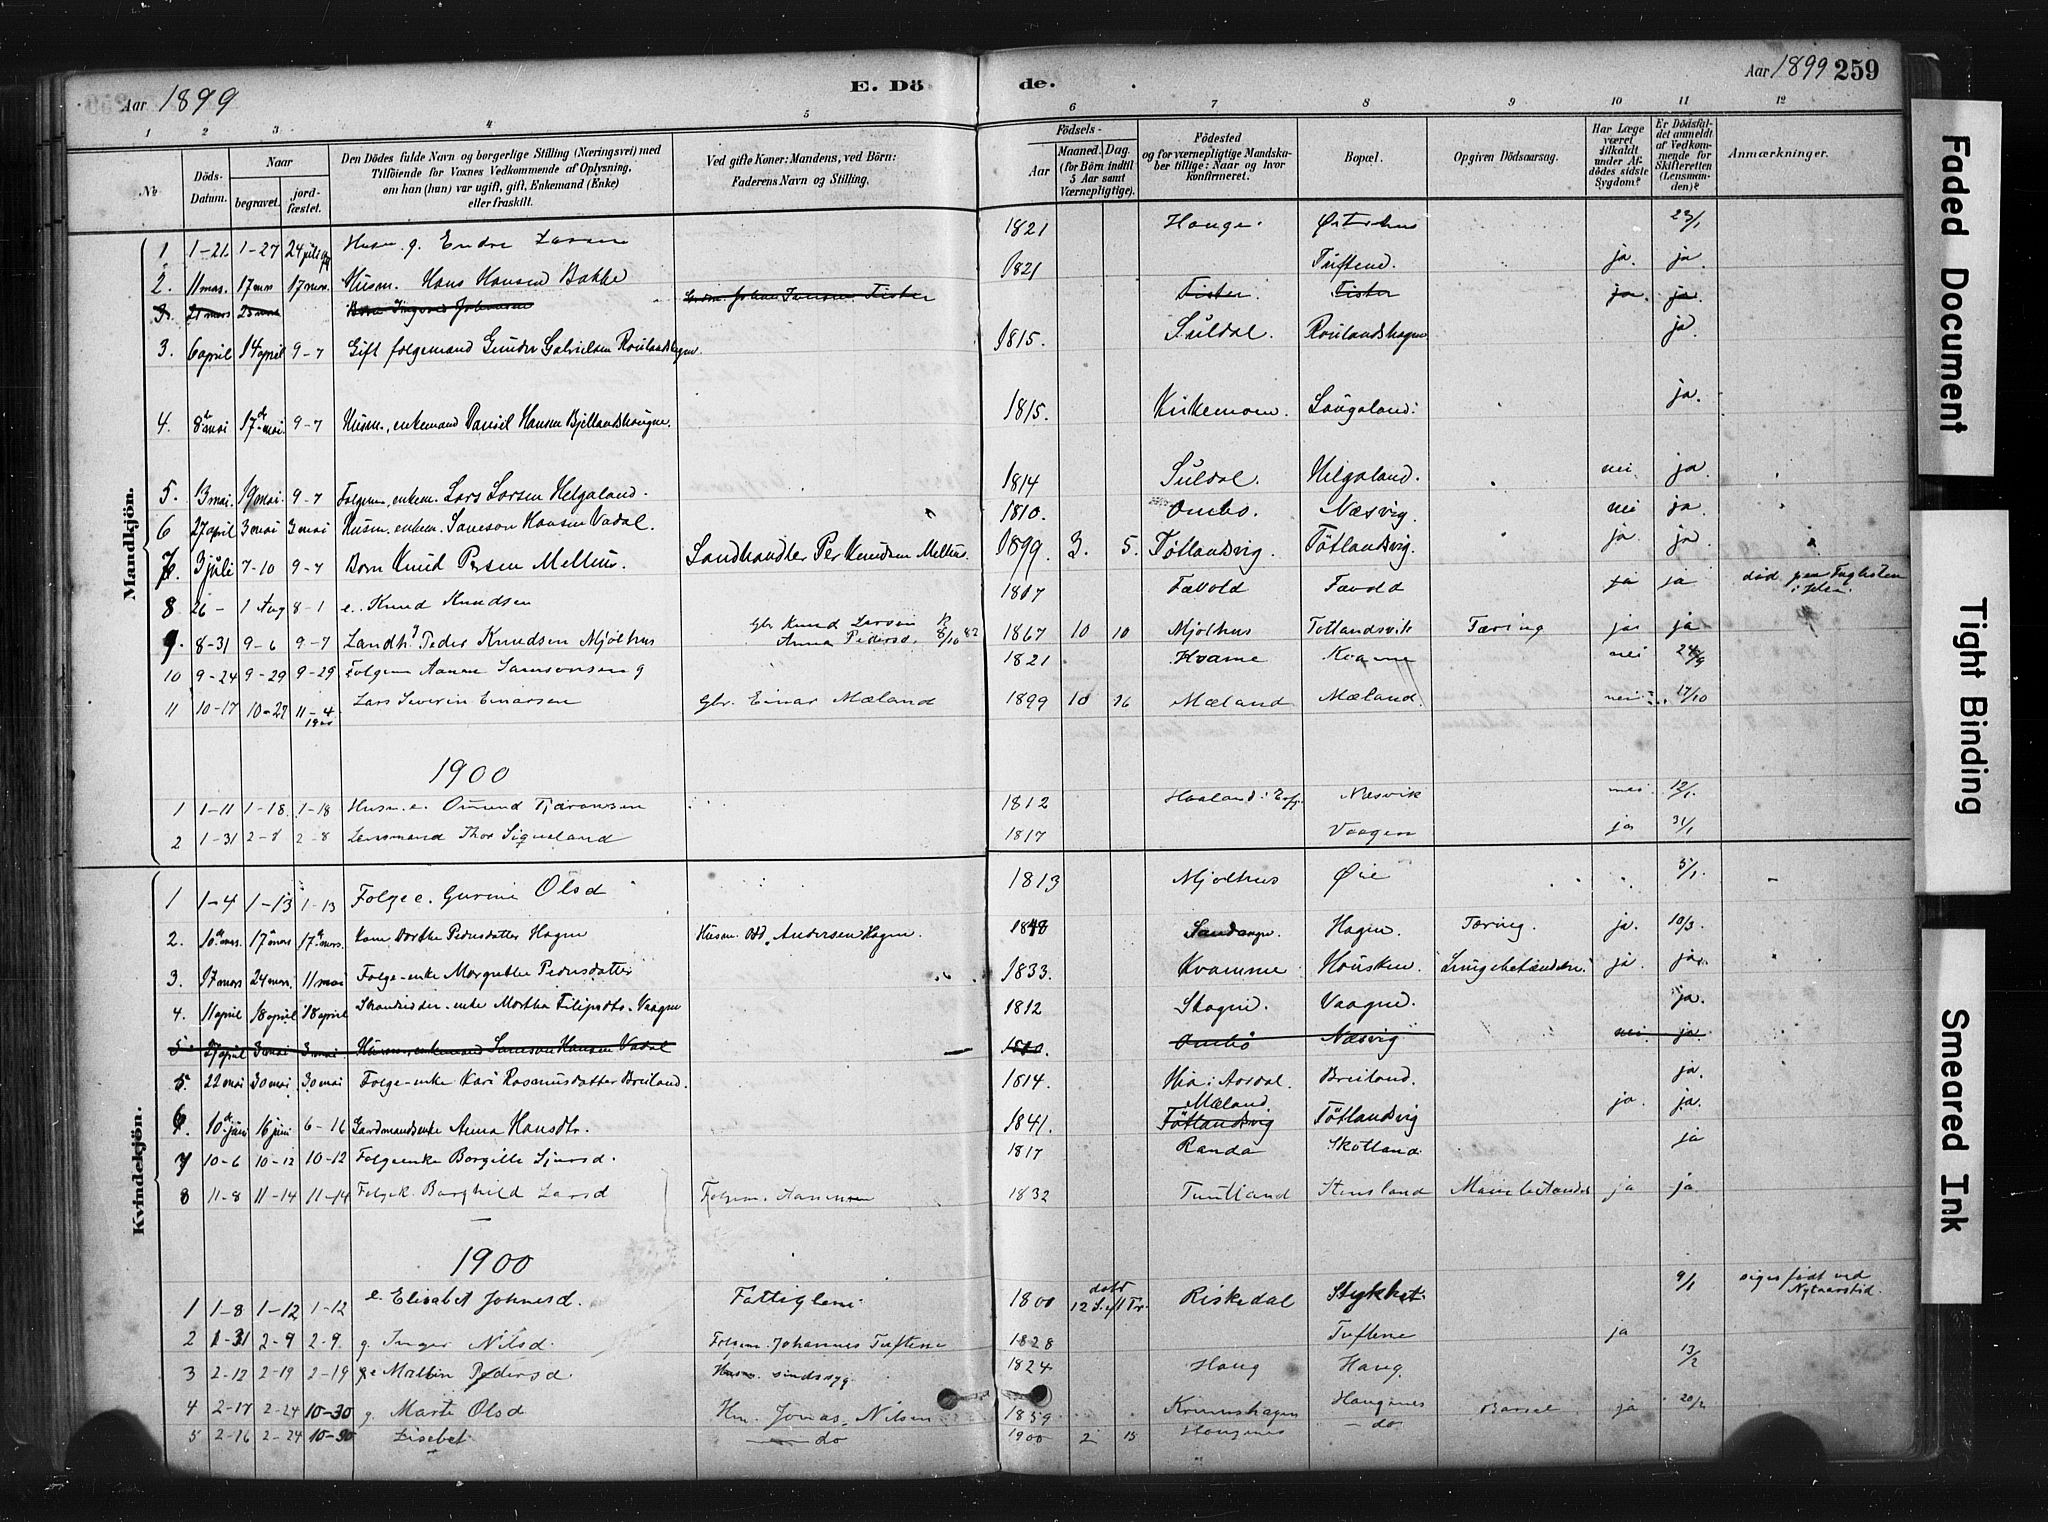 Aar 1899 E. Dö
de. Aar 1899 259
1 2 3 4 5 6 7 8 9 10 11 12
No Döds-Datum. Naar begravet. jordfæstet. Den Dödes fulde Navn og borgerlige Stilling (Næringsvei) med Tilföiende for Voxnes Vedkommende af Oplysning, om han (hun) var ugift, gift, Enkemand (Enke) eller fraskilt. Ved gifte Koner: Mandens, ved Börn: Faderens Navn og Stilling. Födsels- Aar Maaned. Dag. (for Börn indtil 5 Aar samt Værnepligtige). Födested og for værnepligtige Mandskaber tillige: Naar og hvor konfirmeret. Bopæl. Opgiven Dödsaarsag. Har Læge været tilkaldt under Afdödes sidste Sygdom? Er Dödsfaldet anmeldt af Vedkommende for Skifteretten (Lensmanden)? Anmærkninger.
Mandkjön.
1 1-21 1-27 24 juli Husm. g. Endre Larsen 1821 Hauge Østerhus 23/1
2. 11 mars. 17 mars 17 mars. Husm. Hans Hansen Bakke 1821 Tuftene. ja. ja.
3. 21 mars 25 mars Barn Ingvald Johansen Fister Fister. Fister ja. ja
3. 6 april 14 april 9-7 Gift folgemand Gunder Gabrielsen Roulandshagen 1815. Suldal. Roulandshagen ja.
4. 8de mai 17de mai. 9-7 Husm., enkemand Daniel Hansen Bjellandshaugene. 1815. Kirkemoen. Laugaland. ja.
5. 13 mai. 19 mai 9-7 Folgem., enkem. Lars Larsen Helgaland. 1814 Suldal. Helgaland. nei ja.
6 27 april 3 mai 3 mai Husm. enkem. Samson Hansen Vadal. 1810. Ombo. Næsvig. nei ja.
7. 3 juli 7-10 9-7 Barn Knud Persen Melhus. Landhandler Per Knudsen Melhus. 1899. 3. 5. Tøtlandsvig. Tøtlandsvig. ja. ja.
8 26- 1 Aug 8-1 e. Knud Knudsen 1817 Tavold Tavold ja ja død paa Fuglesten i Jelsa.
9 8-31 9-6 9-7 Landh. Peder Knudsen Mjølhus Gbr Knud Larsen Anna Pedersd. 1867 10 10 Mjolhus Totlandsvik Tæring ja ja
10 9-24 9-29 9-29 Folgem Aanen Samsonsen g 1821 Kvame Kvame nei 24/9
11 10-17 10-27 11-4 1900 Lars Severin Einarsen Gbr. Einar Mæland 1899 10 16 Mæland Mæland. nei 17/10
1900
1 1-11 1-18 1-18 Husm. e. Omund Tjæransen 1812 Haaland i Erfj. Næsvik nei 12/1.
2 1-31 2-8 2-8 Lensmand Thor Signeland 1817 Vaagen ja 31/1
Kvindekjön.
1 1-4 1-13 1-13 Folge e. Gurine Olsd 1813 Mjolhus Øie 5/1.
2. 10de mars. 17de mars 17de mars. Kone Dorthe Pedersdatter Hagen Husm. Odd. Andersen Hagen. 1848 Sandanger. Hagen. Tæring. ja. 10/3.
3. 17 mars 24 mars. 11 mai Folge-enke Margrethe Pedersdatter 1833. Kvamme Housken. Lungebetændelse. ja. ja.
4. 11 april 18 april 18 april Strandsidder-enke Martha Filipsdtr. Vaagen 1812 Skogene. Vaagene. ja.
5. 27 april 3 mai 3 mai Husm., enkemand Samson Hansen Vadal 1810. Ombo Næsvig nei. ja.
5. 22 mai 30 mai. 30 mai Folge-enke Kari Rasmusdatter Breiland. 1814. Hia i Aardal. Breiland. ja.
6. 10de juni 16 juni 6-16 Gardmandsenke Anna Hansdtr. 1841. Mæland. Tøtlandsvig Tøtlandsvig ja. ja.
7 10-6 10-12 10-12 Folgeenke Borgille Sjursd. 1817 Randa Skotland ja
8 11-8 11-14 11-14 Folgek. Borghild Larsd Folgem. Aanensen 1832 Tuntland Stensland ja ja.
1900
1 1-8 1-12 1-12 e. Elisabet Johnesd. Fattiglem 1800 døbt 12 S. e/ Tr. Riskedal Stykket. 9/1 siges født ved Nytaarstid.
2 1-31 2-9 2-9. g. Inger Nilsd. Folgem. Johannes Tuftene 1828 Tuftene ja
3 2-12 2-19 2-19 e Malbin Pedersd. Husm. sindssyg. 1824 Haug Haug. 13/2
4 2-17 2-24 10-30 g. Marte Olsd Hm. Jonas Nilsen 1859 Krunshagen Haugenes Barsel ja 20/2
5 2-16 2-24 10-30 Lisebet — do 1900 2 15 Haugenes — do
Faded Document
Tight Binding
Smeared Ink